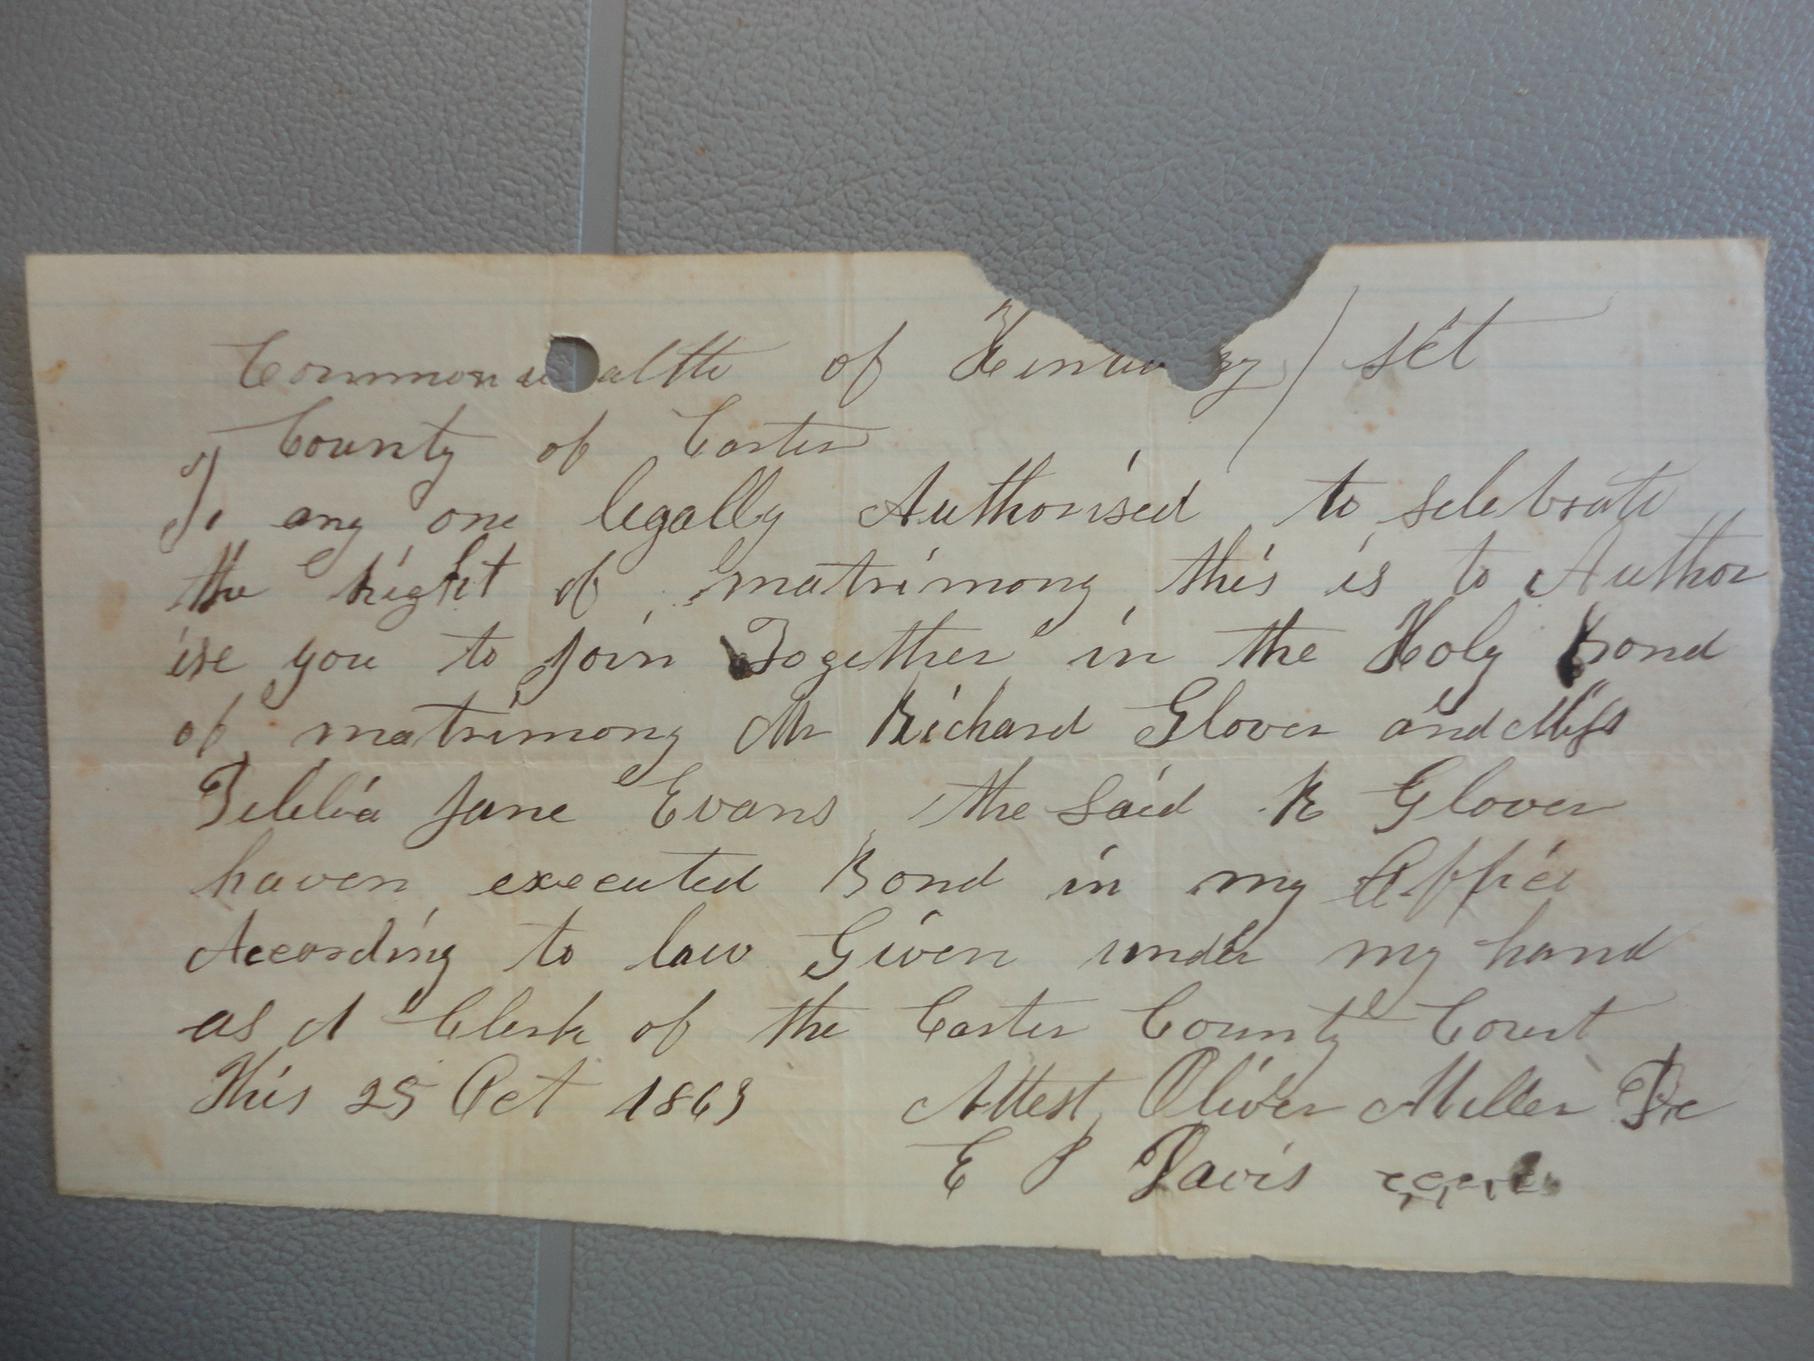 Commonwealth of Kentucky ) sct
County of Carter
To any one legally Authorised to selebrate
the right of matrimony this is to Author
ise you to join Together in the Holy Bond
of matrimony Mr Richard Glover and Miss
Jane Evans the said R Glover
haven executed Bond in my Office
According to law Given under my hand
as A Clerk of the Carter County Court
This 25 Oct 1863 Attest Oliver Miller
E P Davis